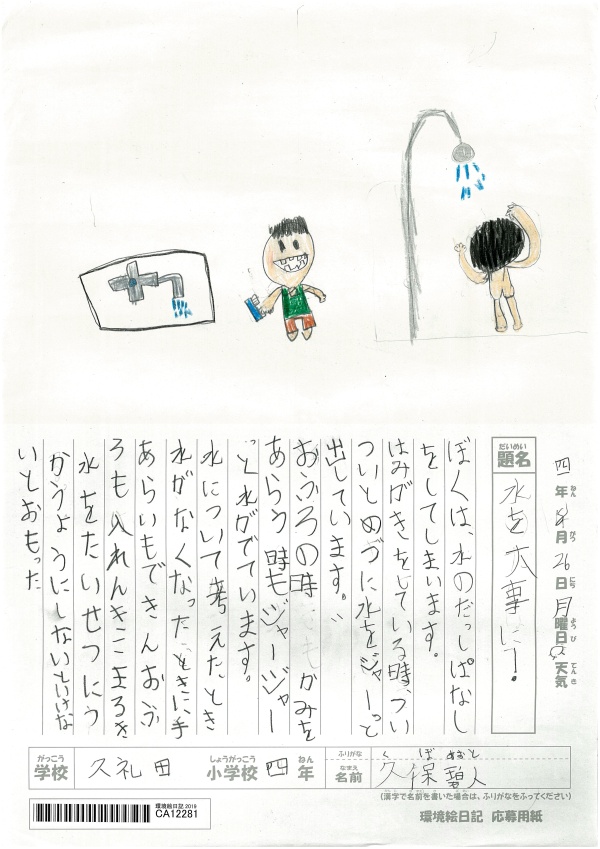 四年8月26日月曜日 天気
ねん がつ にち ようび てんき
だいめい
題名 水を大事に!
ぼくは、水のだっしぱなし
をしてしまいます。
はみがきをしている時、つい
ついとめづに水をジャーっと
出しています。
おふろの時にもかみを
あらう時もジャージャー
っと水がでています。
水について考えたとき
水がなくなったときに手
あらいもできんおふ
ろも入れんきこまるき
水をたいせつにつ
かうようにしないといけな
いとおもった
がっこう しょうがっこう ねん ふりがな く ぼ あおと
学校 久礼田 小学校 四年 なまえ 名前 久保碧人
(漢字で名前を書いた場合は、ふりがなをふってください)
環境絵日記2019
CA12281
環境絵日記 応募用紙